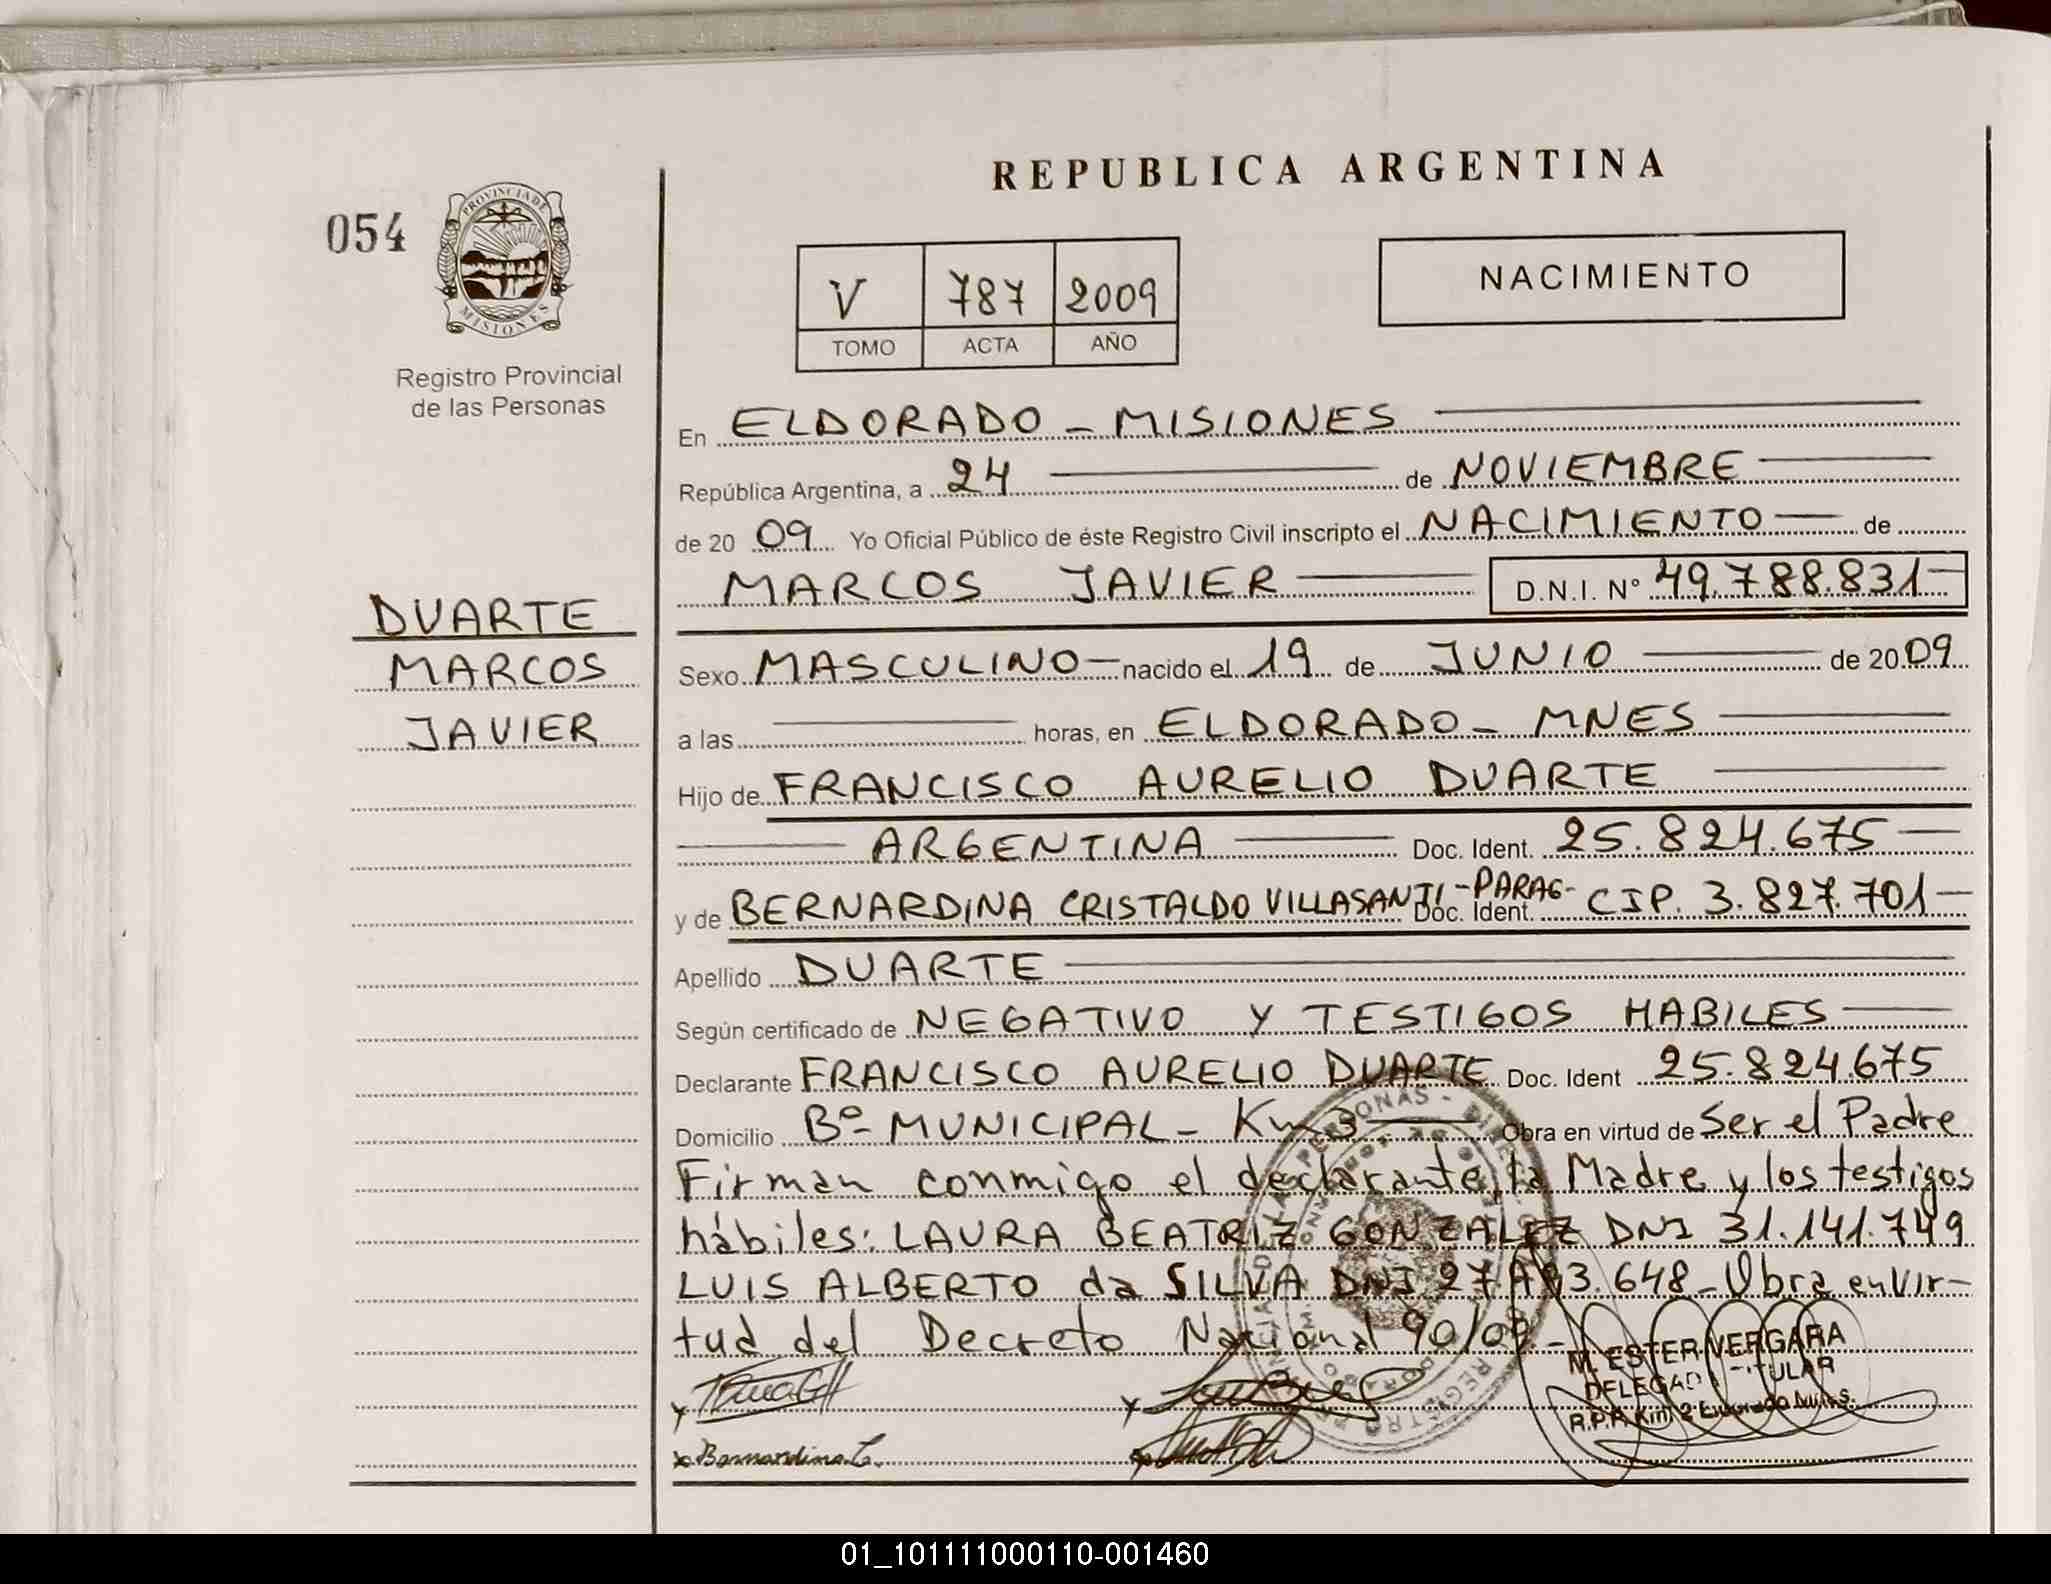 REPUBLICA ARGENTINA
054
PROVINCIA DE
MISIONES
Registro Provincial
de las Personas
V 787 2009
TOMO ACTA AÑO
NACIMIENTO
DUARTE
MARCOS
JAVIER
En ELDORADO - MISIONES
República Argentina, a 24 de NOVIEMBRE
de 20 09 Yo Oficial Público de éste Registro Civil inscripto el NACIMIENTO de
MARCOS JAVIER D.N.I. N° 49.788.831
Sexo MASCULINO nacido el 19 de JUNIO de 20 09
a las horas, en ELDORADO - MNES
Hijo de FRANCISCO AURELIO DUARTE
ARGENTINA Doc. Ident. 25.824.675
y de BERNARDINA CRISTALDO VILLASANTI - PARAG- Doc. Ident. CIP. 3.827.701
Apellido DUARTE
Según certificado de NEGATIVO Y TESTIGOS HABILES
Declarante FRANCISCO AURELIO DUARTE Doc. Ident 25.824.675
Domicilio Bº MUNICIPAL - Km 3 Obra en virtud de Ser el Padre
Firman conmigo el declarante, la Madre y los testigos
hábiles: LAURA BEATRIZ GONZALEZ DNI 31.141.749
LUIS ALBERTO da SILVA DNI 648 - Obra en vir-
tud del Decreto Nacional 90/09 -
M. ESTER VERGARA
DELEGADA TITULAR
R.P.P. Km 2 Eldorado Mnes.
x Bernardina C.
01_101111000110-001460